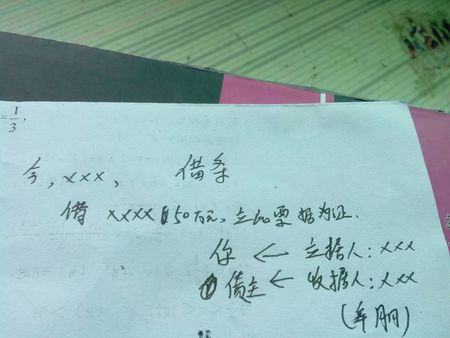 = 1/3,
借条
今,xxx,
借 xxxx 150万元,立此票据为证.
你 ← 立据人:xxx
债主 ← 收据人:xxx
(年月日)